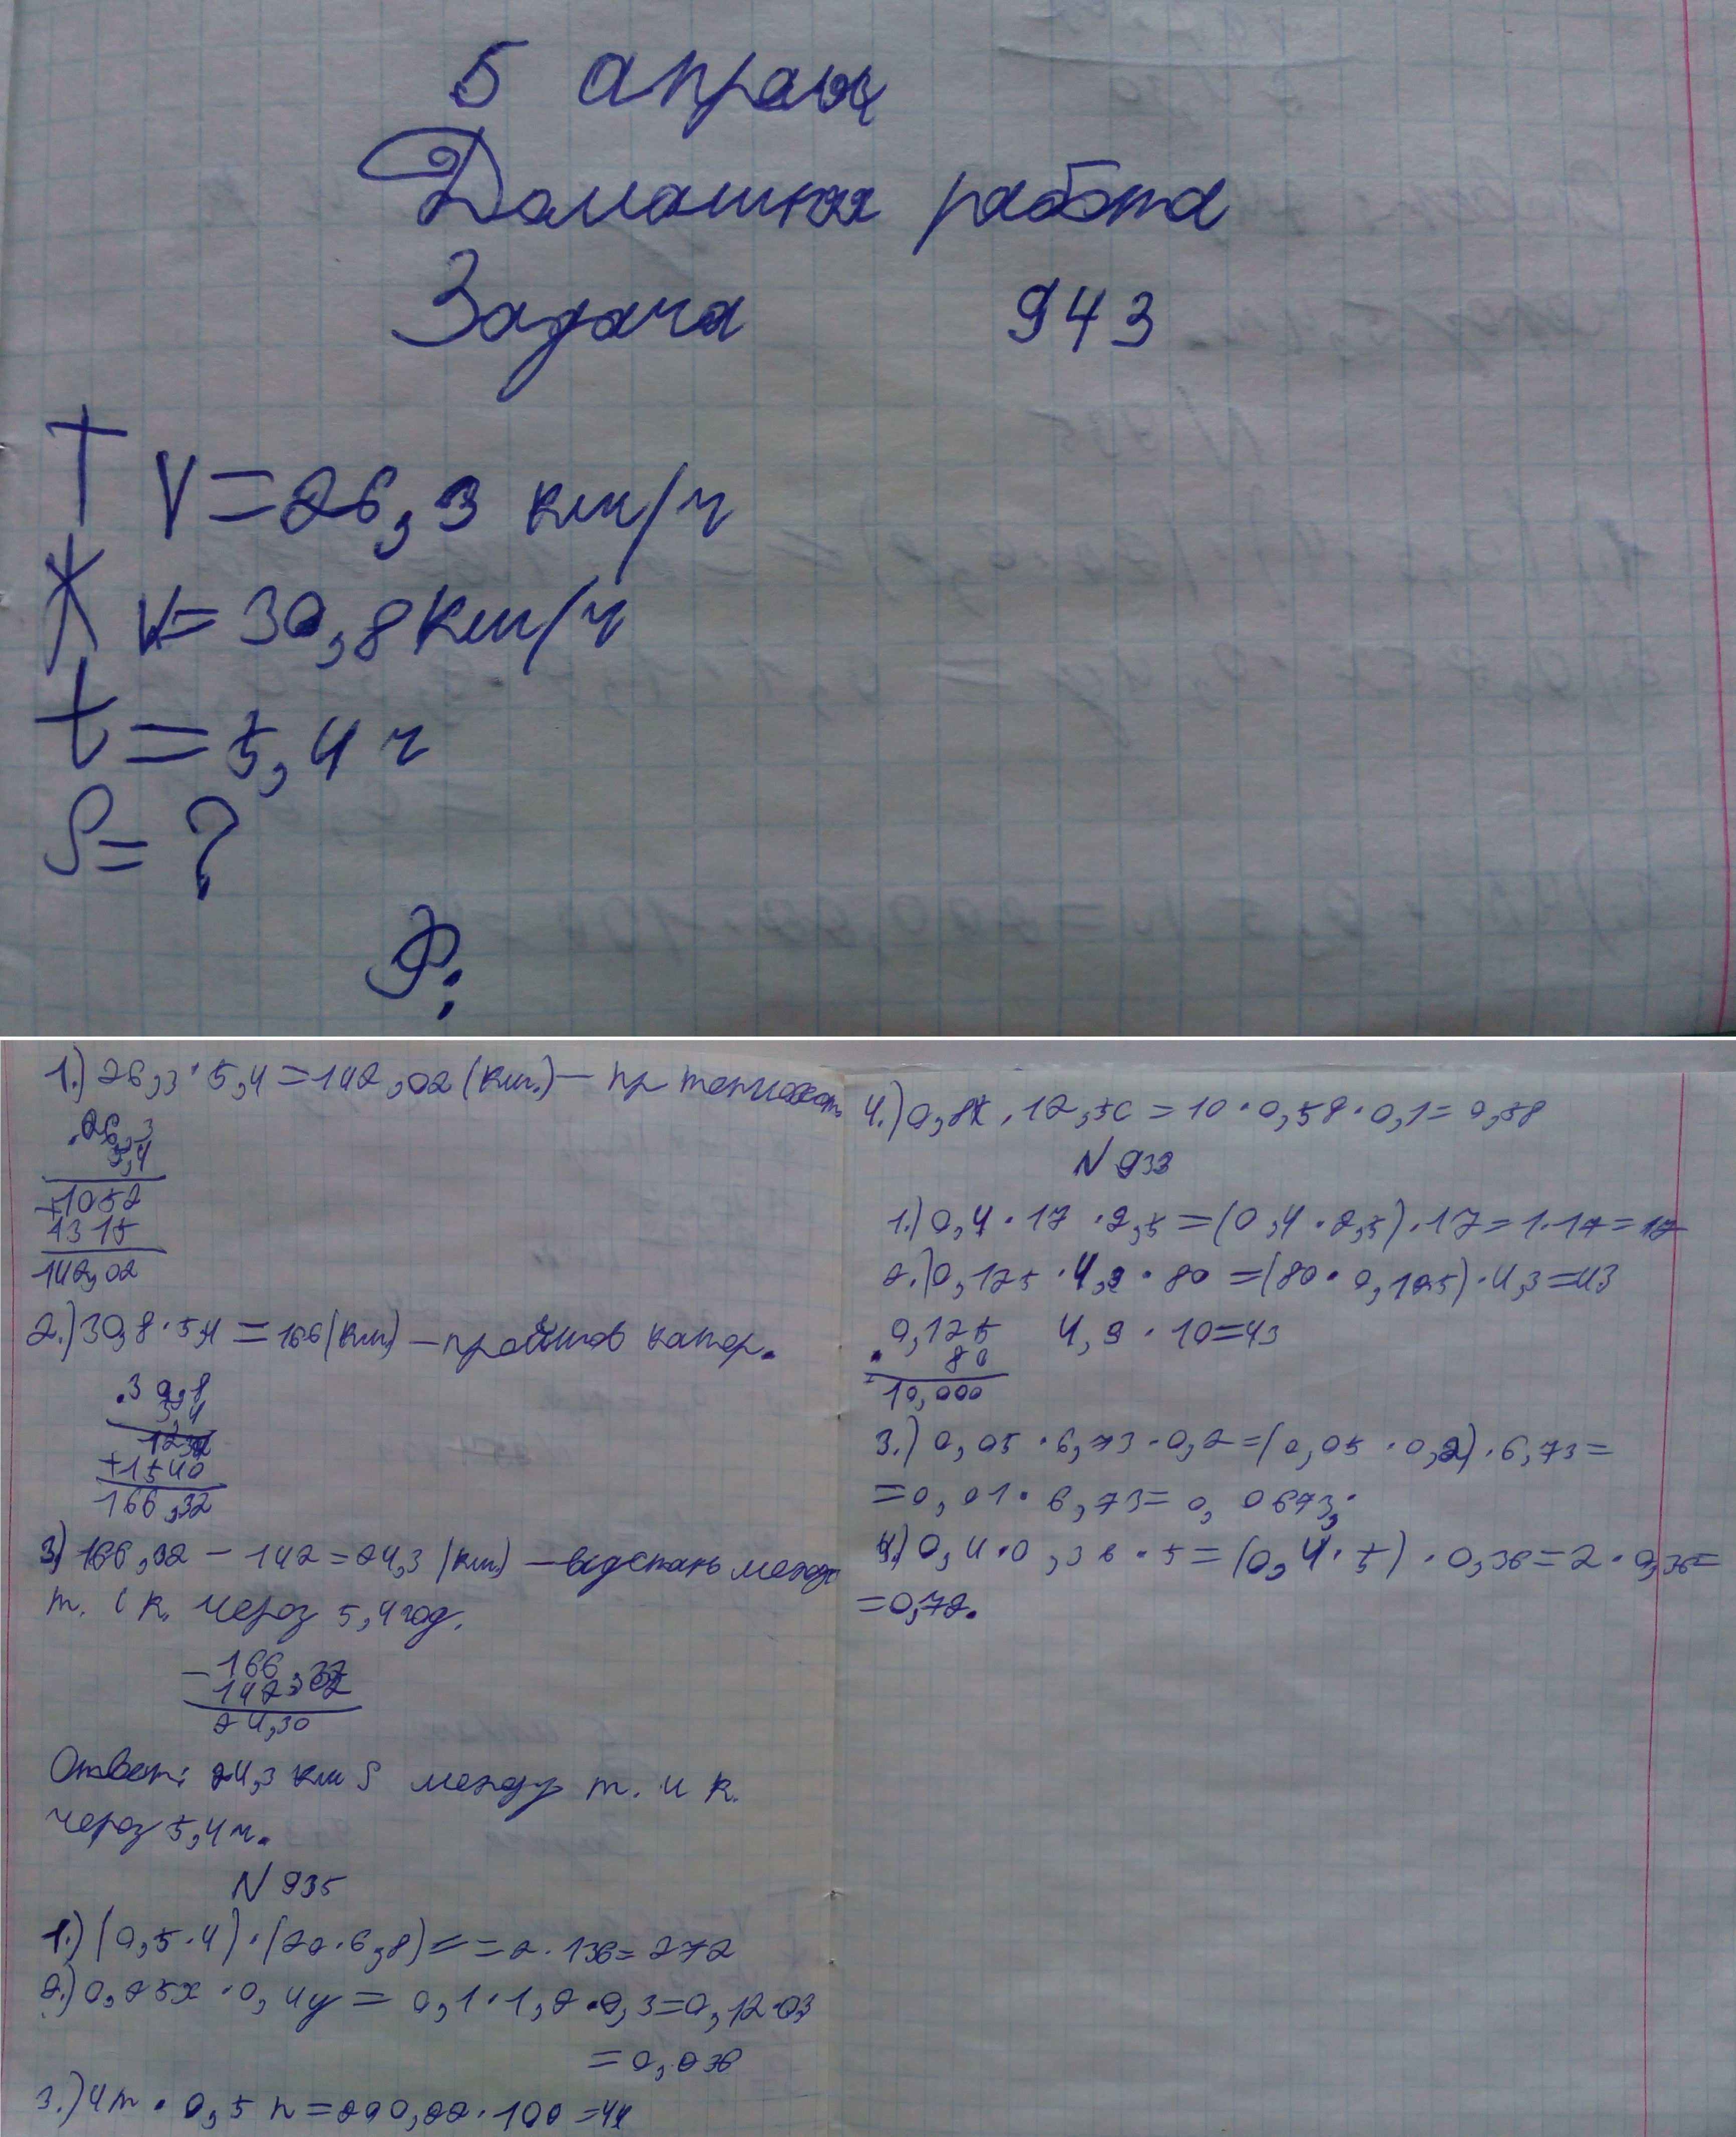 5 апреля
Домашняя работа
Задача 943
Т V=26,3 км/ч
К V=30,8 км/ч
t=5,4 ч
S=?
Р:
1.) 26,3·5,4=142,02 (км.) – пр теплоход.
26,3
5,4
+1052
1315
142,02
2.) 30,8·5,4=166 (км) – пройшов катер.
30,8
5,4
1232
+1540
166,32
3) 166,32-142=24,3 (км) – відстань между
т. і к. через 5,4 год.
-166,32
142,02
24,30
Ответ: 24,3 км S между т. и к.
через 5,4 ч.
N 935
1.) (0,5·4)·(20·6,8)= =2·136=272
2.) 0,25x·0,4y= 0,1·1,2·0,3=0,12·0,3
=0,036
3.) 4m·0,5n=2·0,22·100=44
4.) 0,8x·12,5c=10·0,58·0,1=0,58
N 933
1.) 0,4·17·2,5=(0,4·2,5)·17=1·17=17
2.) 0,125·4,3·80=(80·0,125)·4,3=43
0,125 4,3·10=43
80
10,000
3.) 0,05·6,73·0,2=(0,05·0,2)·6,73=
=0,01·6,73=0,0673;
4.) 0,4·0,36·5=(0,4·5)·0,36=2·0,36=
=0,72.